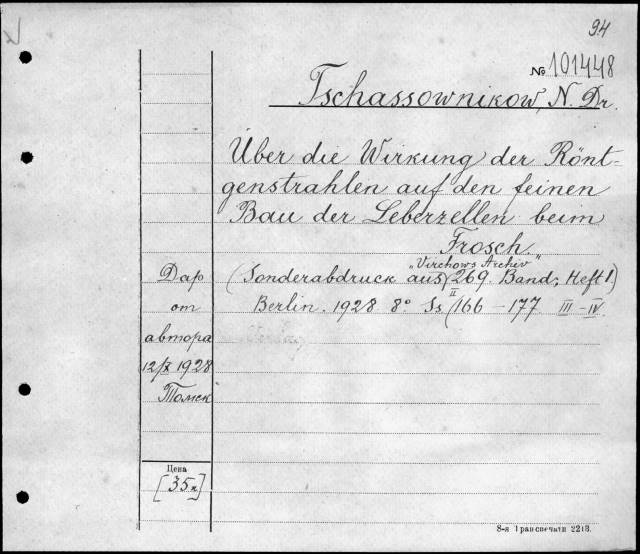 94
№ 101448
Tschassownikow, N. Dr.
Über die Wirkung der Rönt-
genstrahlen auf den feinen
Bau der Leberzellen beim
Frosch.
„Virchows Archiv"
Дар (Sonderabdruck aus 269. Band, Heft 1.)
II
от Berlin. 1928 8° Ss. (166 – 177 III – IV.
автора
12/X 1928
Томск
Цена
[35к]
8-я Транспечати 2213.